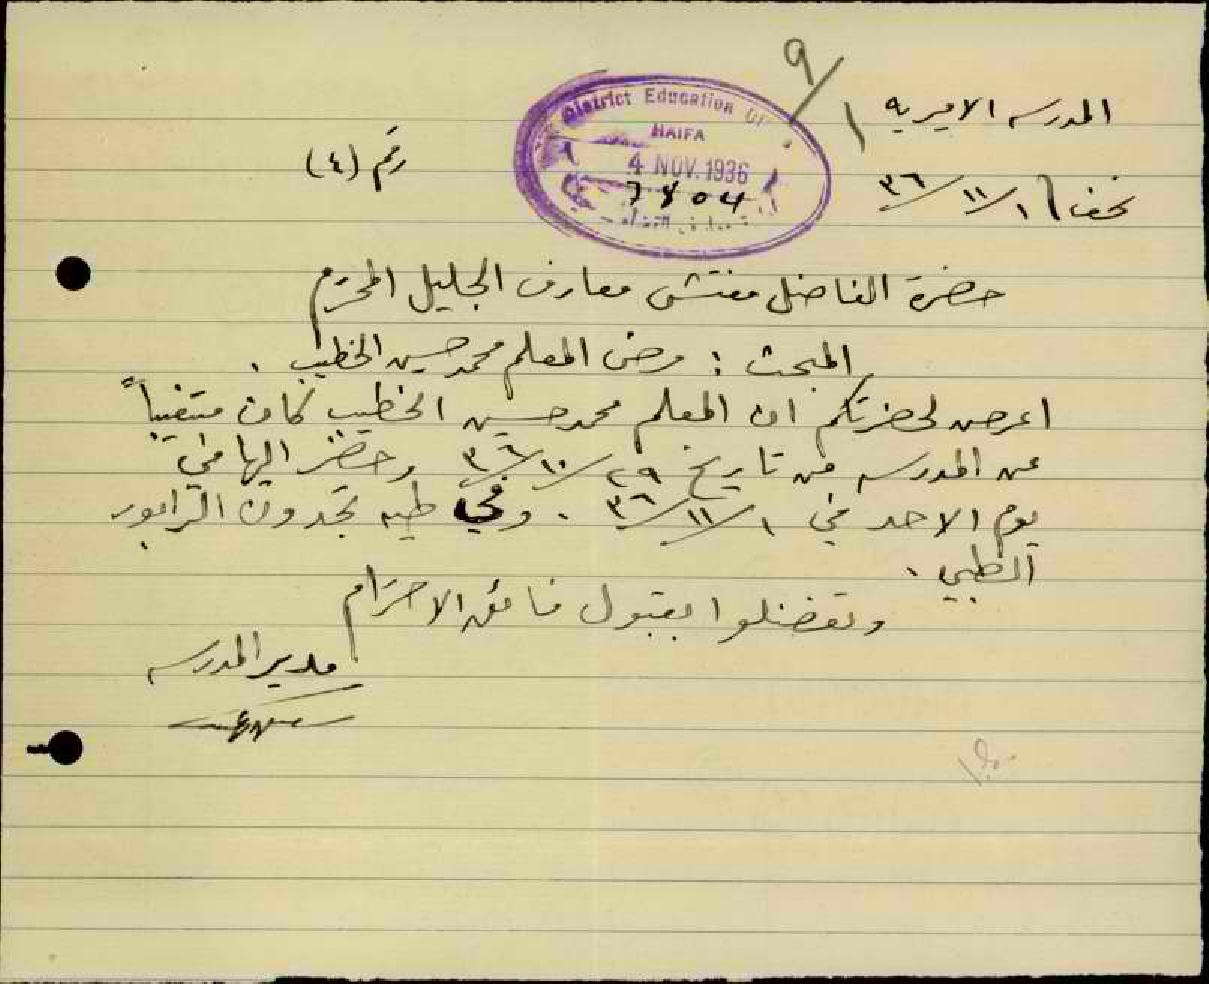 9/1
المدرسه الاميريه
نحف ١/١١/٣٦
رقم (٤)
District Education Of
HAIFA
4 NOV. 1936
7804
حضرة الفاضل مفتش معارف الجليل المحترم
المبحث : مرض المعلم محمد حسين الخطيب .
اعرض لحضرتكم ان المعلم محمد حسين الخطيب كان متغيباً
عن المدرسه من تاريخ ٢٩/١٠/٣٦ وحضر اليها في
يوم الاحد في ١/١١/٣٦ . وفي طيه تجدون الرابور
الطبي .
وتفضلوا بقبول فائق الاحترام
مدير المدرسه